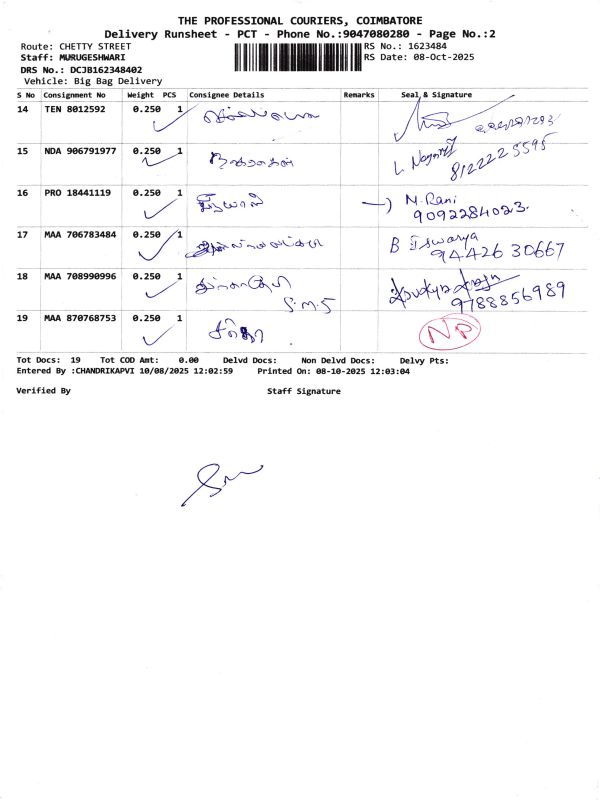 THE PROFESSIONAL COURIERS, COIMBATORE
Delivery Runsheet - PCT - Phone No.:9047080280 - Page No.:2
Route: CHETTY STREET RS No.: 1623484
Staff: MURUGESHWARI RS Date: 08-Oct-2025
DRS No.: DCJB162348402
Vehicle: Big Bag Delivery
S No Consignment No Weight PCS Consignee Details Remarks Seal & Signature
14 TEN 8012592 0.250 1
15 NDA 906791977 0.250 1 L. Nagaraj
8122225595
16 PRO 18441119 0.250 1 M. Rani
9092284023
17 MAA 706783484 0.250 1 B Iswarya
9442630667
18 MAA 708990996 0.250 1 S.M.S
9788856989
19 MAA 870768753 0.250 1 NP
Tot Docs: 19 Tot COD Amt: 0.00 Delvd Docs: Non Delvd Docs: Delvy Pts:
Entered By :CHANDRIKAPVI 10/08/2025 12:02:59 Printed On: 08-10-2025 12:03:04
Verified By Staff Signature